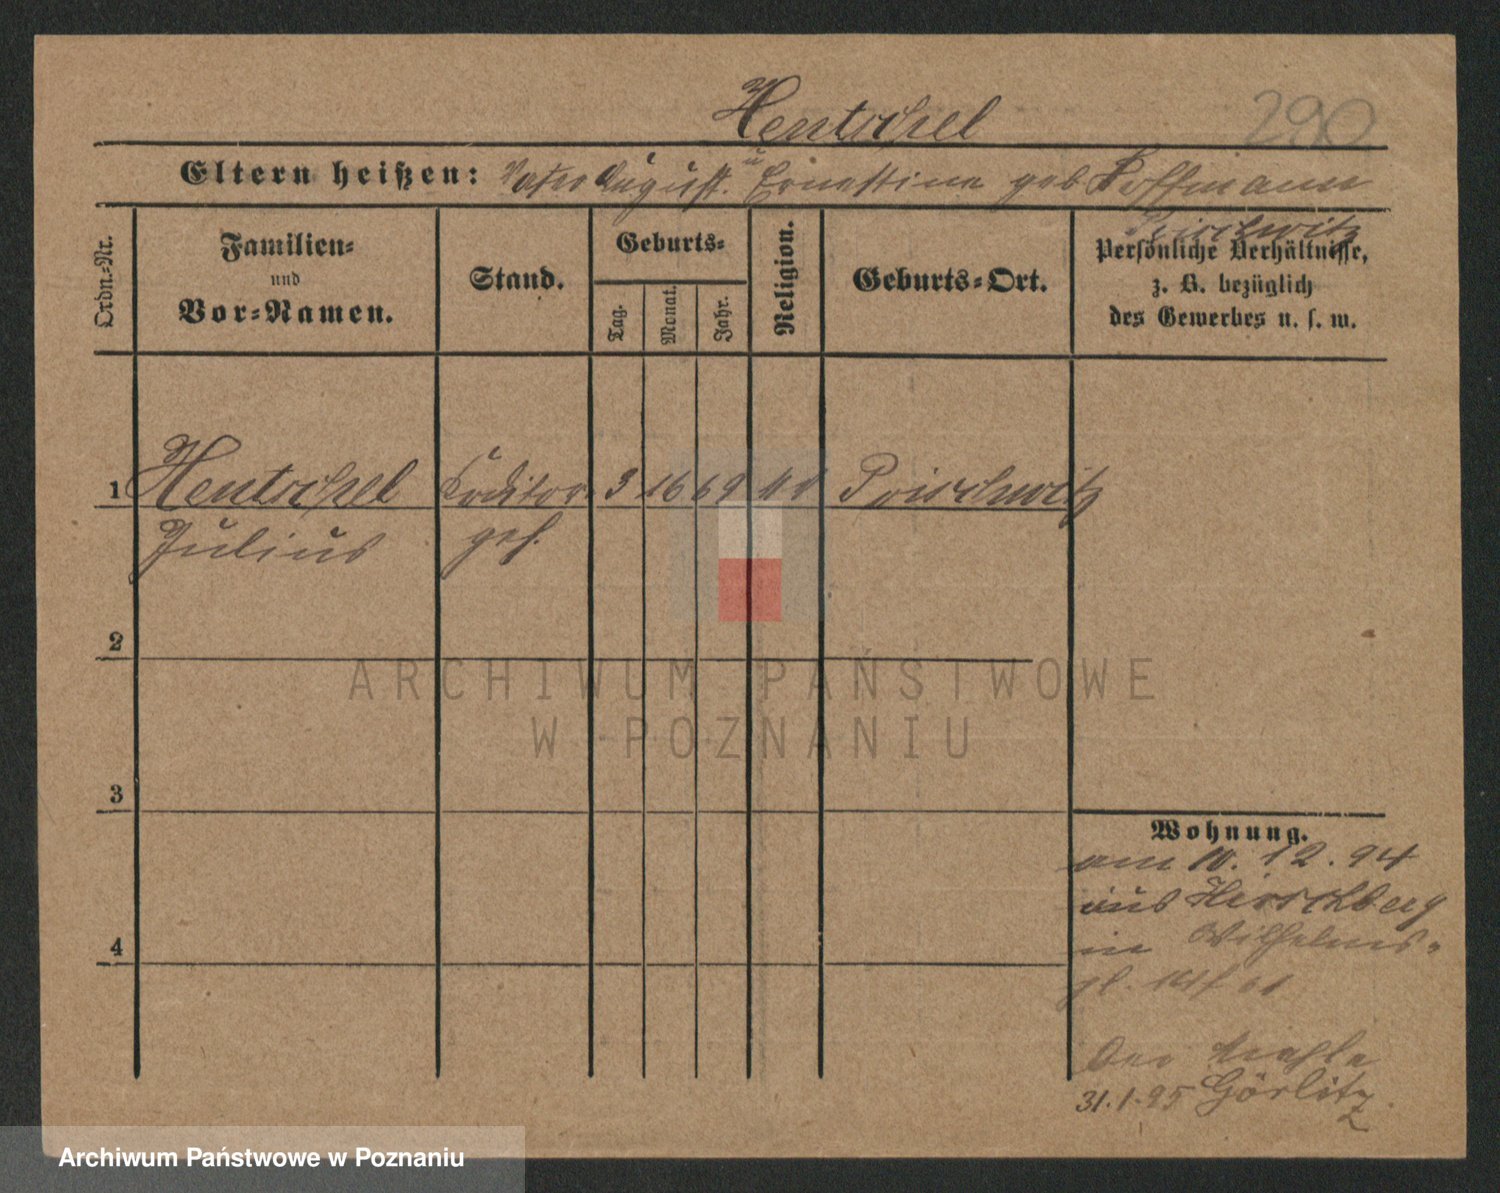 Hentschel
290
Eltern heißen: Vater August u Ernestine geb Hoffmann
Ordn.-Nr.
Familien-
und
Vor-Namen.
Stand.
Geburts-
Tag.
Monat.
Jahr.
Religion.
Geburts-Ort.
Persönliche Verhältnisse,
z. B. bezüglich
des Gewerbes u. s. w.
1 Hentschel
Julius
3 69
2
3
4
ARCHIWUM PAŃSTWOWE
W POZNANIU
Wohnung.
am 10. 12. 94
aus Hirschberg
in Wilhelms-
pl.
31.1.95 Görlitz
Archiwum Państwowe w Poznaniu